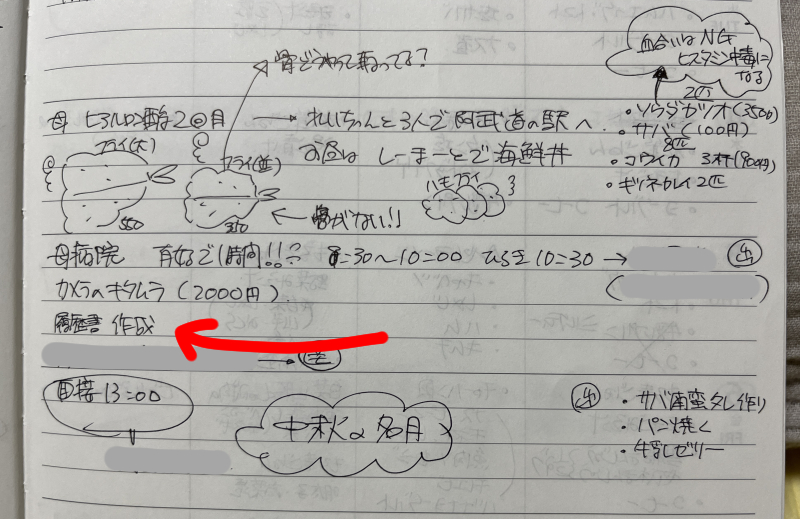 骨どうやって取ってる?
血合いはNG
ヒスタミン中毒に
なる
母 ヒアルロン酸2回目 → れいちゃんと3人で阿武道の駅へ
2匹
・ソウダガツオ(350)
・サバ(100円)
8匹
・コウイカ 3杯(900円)
・ギツネカレイ2匹
お昼は しーまーとで海鮮丼
フライ(大)
550
フライ(並)
310
← 骨がない!!
ハモフライ
母病院
で1時間!!?
:30〜10:00
10:30 →
出
カメラのキタムラ (2000円)
履歴書 作成
面接 13:00
中秋の名月
出
・サバ南蛮タレ作り
・パン焼く
・牛乳ゼリー